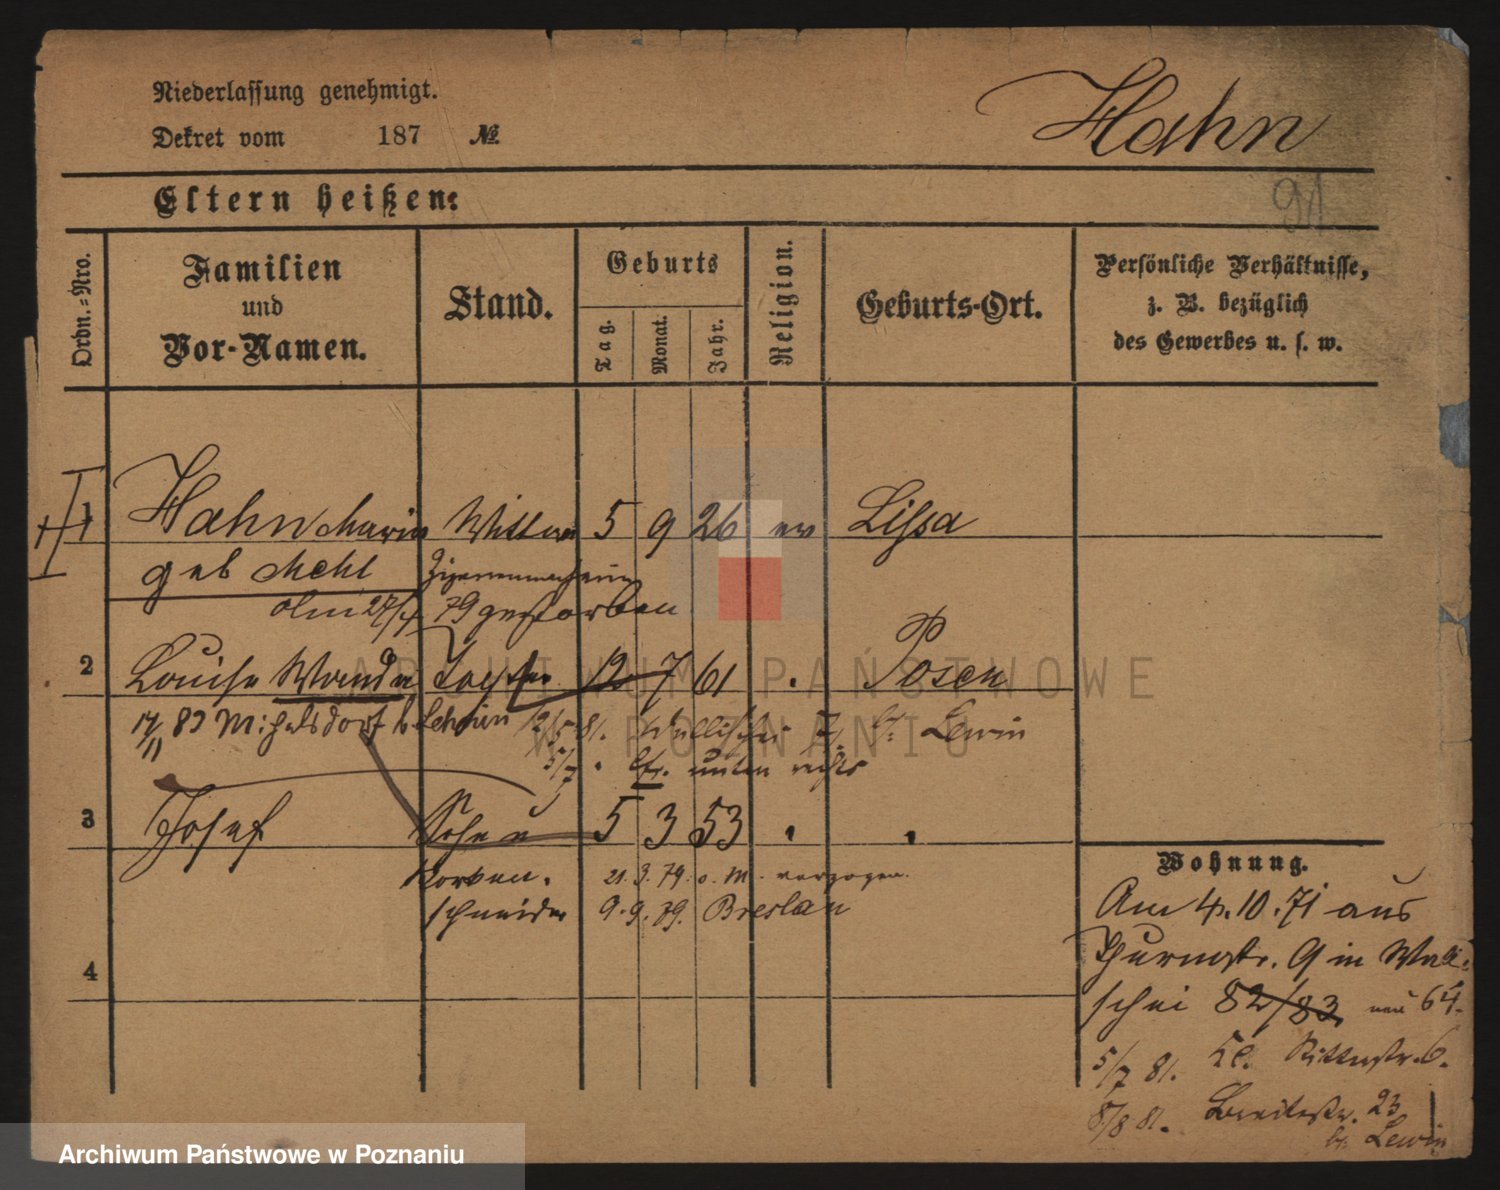 Niederlassung genehmigt.
Dekret vom 187 №
Hahn
91
Eltern heißen:
Ordn.=Nro.
Familien
und
Vor-Namen.
Stand.
Geburts
Tag.
Monat.
Jahr.
Religion.
Geburts-Ort.
Persönliche Verhältnisse,
z. B. bezüglich
des Gewerbes u. s. w.
1 Hahn Marie Wittwe 5 9 26 ev Lissa
geb Mehl Zigarrenmacherin
79 gestorben
2 Louise Wanda Tochter 12 7 61 . Posen
83 b. Lehnin 12/5 81. Wallischei 7. b: Lewin
5/7 . unten rechts
3 Josef Sohn 5 3 53 . .
Korken.
schneider
21.3.79. o. M. verzogen.
9.9.79. Breslau
4
Wohnung.
Am 4.10.71 aus
Thurmstr. 9 in Walli
schei 82/83 neu 64.
5/7 81. Kl. Ritterstr. 6.
8/8 81. Breitestr. 23
b. Lewin
ARCHIWUM PAŃSTWOWE
W POZNANIU
Archiwum Państwowe w Poznaniu